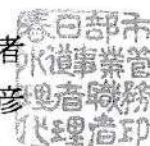 者
彦
春日部市
水道事業管
理者職務
代理者印